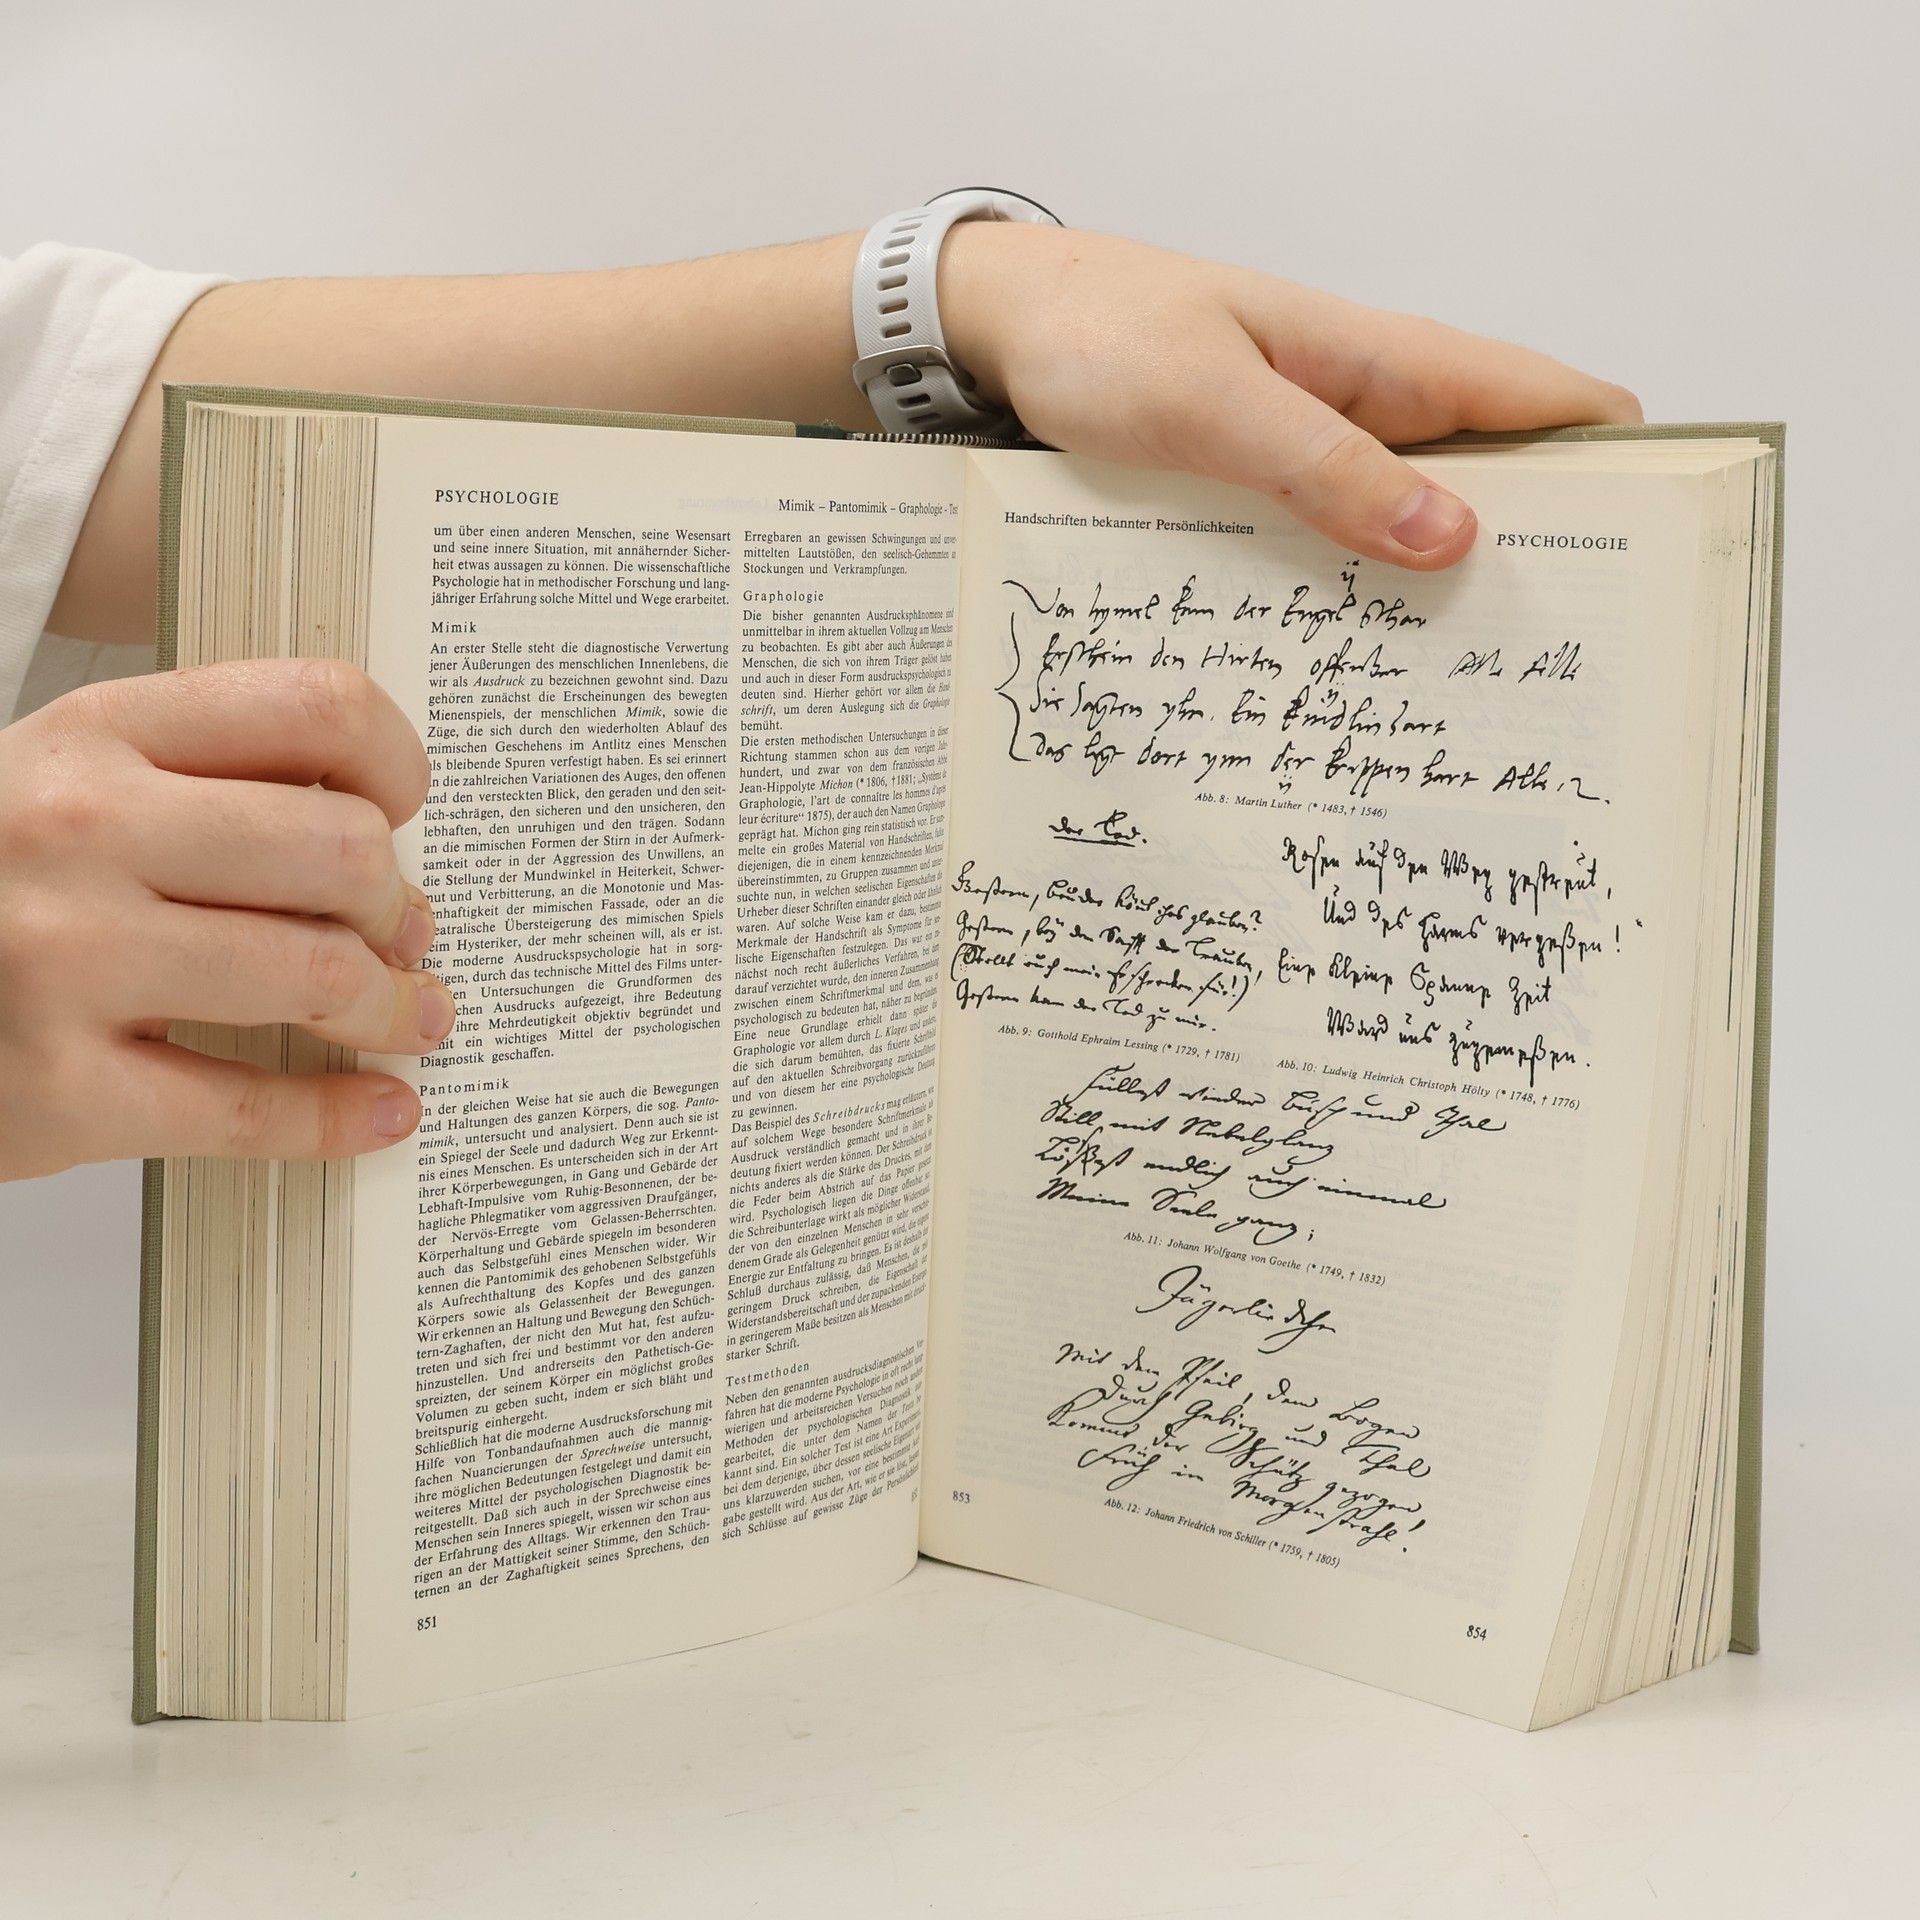 PSYCHOLOGIE
Mimik – Pantomimik – Graphologie -
um über einen anderen Menschen, seine Wesensart
und seine innere Situation, mit annähernder Sicher-
heit etwas aussagen zu können. Die wissenschaftliche
Psychologie hat in methodischer Forschung und lang-
jähriger Erfahrung solche Mittel und Wege erarbeitet.
Mimik
An erster Stelle steht die diagnostische Verwertung
jener Äußerungen des menschlichen Innenlebens, die
wir als Ausdruck zu bezeichnen gewohnt sind. Dazu
gehören zunächst die Erscheinungen des bewegten
Mienenspiels, der menschlichen Mimik, sowie die
Züge, die sich durch den wiederholten Ablauf des
mimischen Geschehens im Antlitz eines Menschen
als bleibende Spuren verfestigt haben. Es sei erinnert
an die zahlreichen Variationen des Auges, den offenen
und den versteckten Blick, den geraden und den seit-
lich-schrägen, den sicheren und den unsicheren, den
lebhaften, den unruhigen und den trägen. Sodann
an die mimischen Formen der Stirn in der Aufmerk-
samkeit oder in der Aggression des Unwillens, an
die Stellung der Mundwinkel in Heiterkeit, Schwer-
mut und Verbitterung, an die Monotonie und Mas-
der mimischen Fassade, oder an die
Übersteigerung des mimischen Spiels
Hysteriker, der mehr scheinen will, als er ist.
Die moderne Ausdruckspsychologie hat in sorg-
durch das technische Mittel des Films unter-
Untersuchungen die Grundformen des
Ausdrucks aufgezeigt, ihre Bedeutung
ihre Mehrdeutigkeit objektiv begründet und
ein wichtiges Mittel der psychologischen
Diagnostik geschaffen.
Pantomimik
In der gleichen Weise hat sie auch die Bewegungen
und Haltungen des ganzen Körpers, die sog. Panto-
mimik, untersucht und analysiert. Denn auch sie ist
ein Spiegel der Seele und dadurch Weg zur Erkennt-
nis eines Menschen. Es unterscheiden sich in der Art
ihrer Körperbewegungen, in Gang und Gebärde der
Lebhaft-Impulsive vom Ruhig-Besonnenen, der be-
hagliche Phlegmatiker vom aggressiven Draufgänger,
der Nervös-Erregte vom Gelassen-Beherrschten.
Körperhaltung und Gebärde spiegeln im besonderen
auch das Selbstgefühl eines Menschen wider. Wir
kennen die Pantomimik des gehobenen Selbstgefühls
als Aufrechthaltung des Kopfes und des ganzen
Körpers sowie als Gelassenheit der Bewegungen.
Wir erkennen an Haltung und Bewegung den Schüch-
tern-Zaghaften, der nicht den Mut hat, fest aufzu-
treten und sich frei und bestimmt vor den anderen
hinzustellen. Und andrerseits den Pathetisch-Ge-
spreizten, der seinem Körper ein möglichst großes
Volumen zu geben sucht, indem er sich bläht und
breitspurig einhergeht.
Schließlich hat die moderne Ausdrucksforschung mit
Hilfe von Tonbandaufnahmen auch die mannig-
fachen Nuancierungen der Sprechweise untersucht,
ihre möglichen Bedeutungen festgelegt und damit ein
weiteres Mittel der psychologischen Diagnostik be-
reitgestellt. Daß sich auch in der Sprechweise eines
Menschen sein Inneres spiegelt, wissen wir schon aus
der Erfahrung des Alltags. Wir erkennen den Trau-
rigen an der Mattigkeit seiner Stimme, den Schüch-
ternen an der Zaghaftigkeit seines Sprechens, den
851
Erregbaren an gewissen Schwingungen und unver-
mittelten Lautstößen, den seelisch-Gehemmten an
Stockungen und Verkrampfungen.
Graphologie
Die bisher genannten Ausdrucksphänomene sind
unmittelbar in ihrem aktuellen Vollzug am Menschen
zu beobachten. Es gibt aber auch Äußerungen des
Menschen, die sich von ihrem Träger gelöst haben
und auch in dieser Form ausdruckspsychologisch zu
deuten sind. Hierher gehört vor allem die Hand-
schrift, um deren Auslegung sich die Graphologie
bemüht.
Die ersten methodischen Untersuchungen in dieser
Richtung stammen schon aus dem vorigen Jahr-
hundert, und zwar von dem französischen Abbé
Jean-Hippolyte Michon (* 1806, † 1881; „Système de
Graphologie, l'art de connaître les hommes d'après
leur écriture“ 1875), der auch den Namen Graphologie
geprägt hat. Michon ging rein statistisch vor. Er sam-
melte ein großes Material von Handschriften, faßte
diejenigen, die in einem kennzeichnenden Merkmal
übereinstimmten, zu Gruppen zusammen und unter-
suchte nun, in welchen seelischen Eigenschaften die
Urheber dieser Schriften einander gleich oder ähnlich
waren. Auf solche Weise kam er dazu, bestimmte
Merkmale der Handschrift als Symptome für see-
lische Eigenschaften festzulegen. Das war ein zu-
nächst noch recht äußerliches Verfahren, bei dem
darauf verzichtet wurde, den inneren Zusammenhang
zwischen einem Schriftmerkmal und dem, was es
psychologisch zu bedeuten hat, näher zu begründen.
Eine neue Grundlage erhielt dann später die
Graphologie vor allem durch L. Klages und andere,
die sich darum bemühten, das fixierte Schriftbild
auf den aktuellen Schreibvorgang zurückzuführen
und von diesem her eine psychologische Deutung
zu gewinnen.
Das Beispiel des Schreibdrucks mag erläutern, wie
auf solchem Wege besondere Schriftmerkmale als
Ausdruck verständlich gemacht und in ihrer Be-
deutung fixiert werden können. Der Schreibdruck ist
nichts anderes als die Stärke des Druckes, mit dem
die Feder beim Abstrich auf das Papier gesetzt
wird. Psychologisch liegen die Dinge offenbar so:
die Schreibunterlage wirkt als möglicher Widerstand,
der von den einzelnen Menschen in sehr verschie-
denem Grade als Gelegenheit genützt wird, die eigene
Energie zur Entfaltung zu bringen. Es ist deshalb der
Schluß durchaus zulässig, daß Menschen, die mit
geringem Druck schreiben, die Eigenschaft der
Widerstandsbereitschaft und der zupackenden Energie
in geringerem Maße besitzen als Menschen mit druck-
starker Schrift.
Testmethoden
Neben den genannten ausdrucksdiagnostischen Ver-
fahren hat die moderne Psychologie in oft recht lang-
wierigen und arbeitsreichen Versuchen noch andere
Methoden der psychologischen Diagnostik aus-
gearbeitet, die unter dem Namen der Tests be-
kannt sind. Ein solcher Test ist eine Art Experiment,
bei dem derjenige, über dessen seelische Eigenart wir
uns klarzuwerden suchen, vor eine bestimmte Auf-
gabe gestellt wird. Aus der Art, wie er sie löst, lassen
sich Schlüsse auf gewisse Züge der Persönlichkeit
Handschriften bekannter Persönlichkeiten
PSYCHOLOGIE
Von hymel kam der Engel schar
Erschein den Hirten offenbar Alle Alle
Sie sagten yhn. Ein kindlin zart
Das ligt dort ynn der krippen hart Alle
Abb. 8: Martin Luther (* 1483, † 1546)
Der Tod.
Gestern, Brüder könnt ihrs glauben?
Gestern, bey dem Saft der Trauben,
(Stellt euch mein Erschrecken für!)
Gestern kam der Tod zu mir.
Abb. 9: Gotthold Ephraim Lessing (* 1729, † 1781)
Rosen auf den Weg gestreut,
Und des Harms vergeßen!
Eine kleine Spanne Zeit
Ward uns zugemeßen.
Abb. 10: Ludwig Heinrich Christoph Hölty (* 1748, † 1776)
Füllest wieder Busch und Thal
Still mit Nebelglanz
Lösest endlich auch einmal
Meine Seele ganz;
Abb. 11: Johann Wolfgang von Goethe (* 1749, † 1832)
Jägerliedchen
Mit dem Pfeil, dem Bogen
Durch Gebirg und Thal
Kommt der Schütz gezogen
Früh im Morgenstrahl.
Abb. 12: Johann Friedrich von Schiller (* 1759, † 1805)
853
854